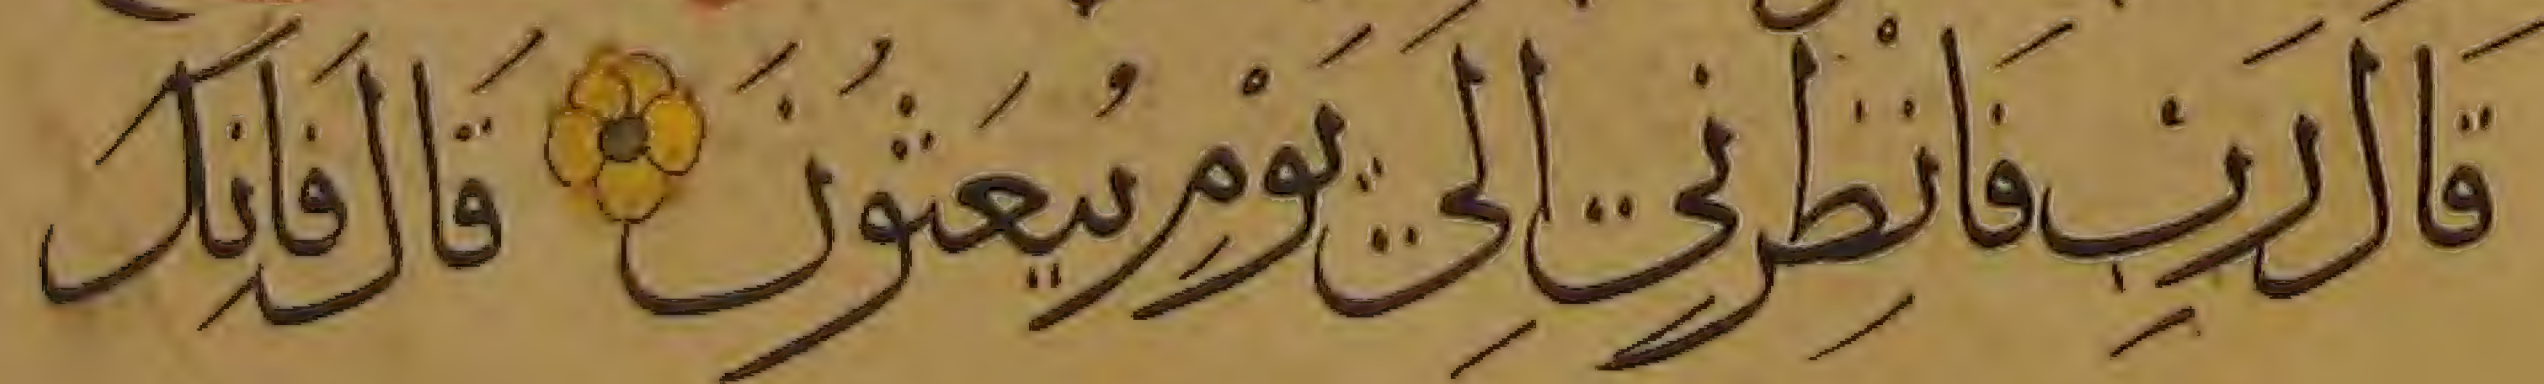 قَالَ رَبِّ فَانْظِرْنِي إِلَى يَوْمِ يُبْعَثُونَ قَالَ فَإِنَّكَ